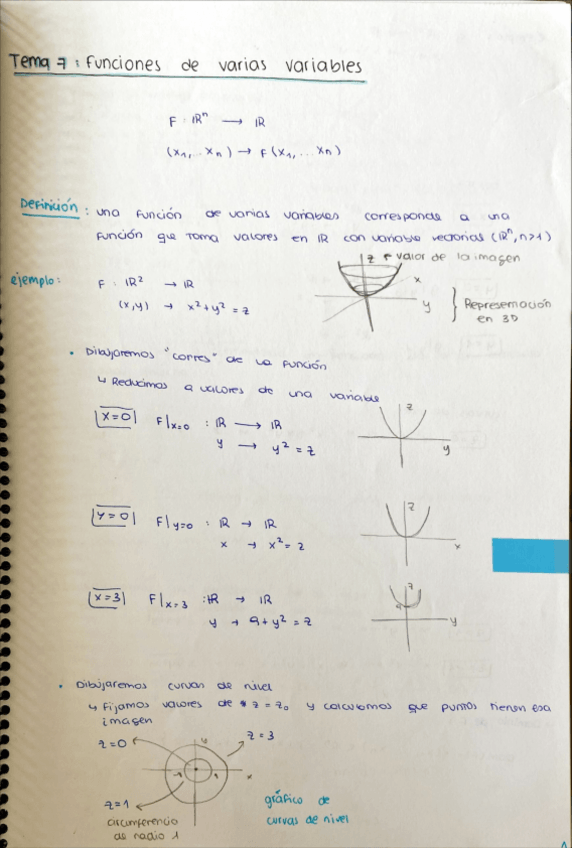 Tema 7: Funciones de varias variables
F: ℝⁿ → ℝ
(x₁, ... xₙ) → F(x₁, ... xₙ)
Definición: una función de varias variables corresponde a una
función que toma valores en ℝ con variable vectorial (ℝⁿ, n>1)
z ← valor de la imagen
ejemplo: F: ℝ² → ℝ
x
(x,y) → x²+y² = z
y
Representación
en 3D
• Dibujaremos "cortes" de la función
↳ Reducimos a valores de una variable
x=0 F|x=0 : ℝ → ℝ
y → y² = z
z
y
y=0 F|y=0 : ℝ → ℝ
x → x² = z
z
x
x=3 F|x=3 : ℝ → ℝ
y → 9+y² = z
z
9
y
• Dibujaremos curvas de nivel
↳ Fijamos valores de z = z₀ y calculamos que puntos tienen esa
imagen
z=0
y
z=3
x
z=1
circunferencia
de radio 1
gráfico de
curvas de nivel